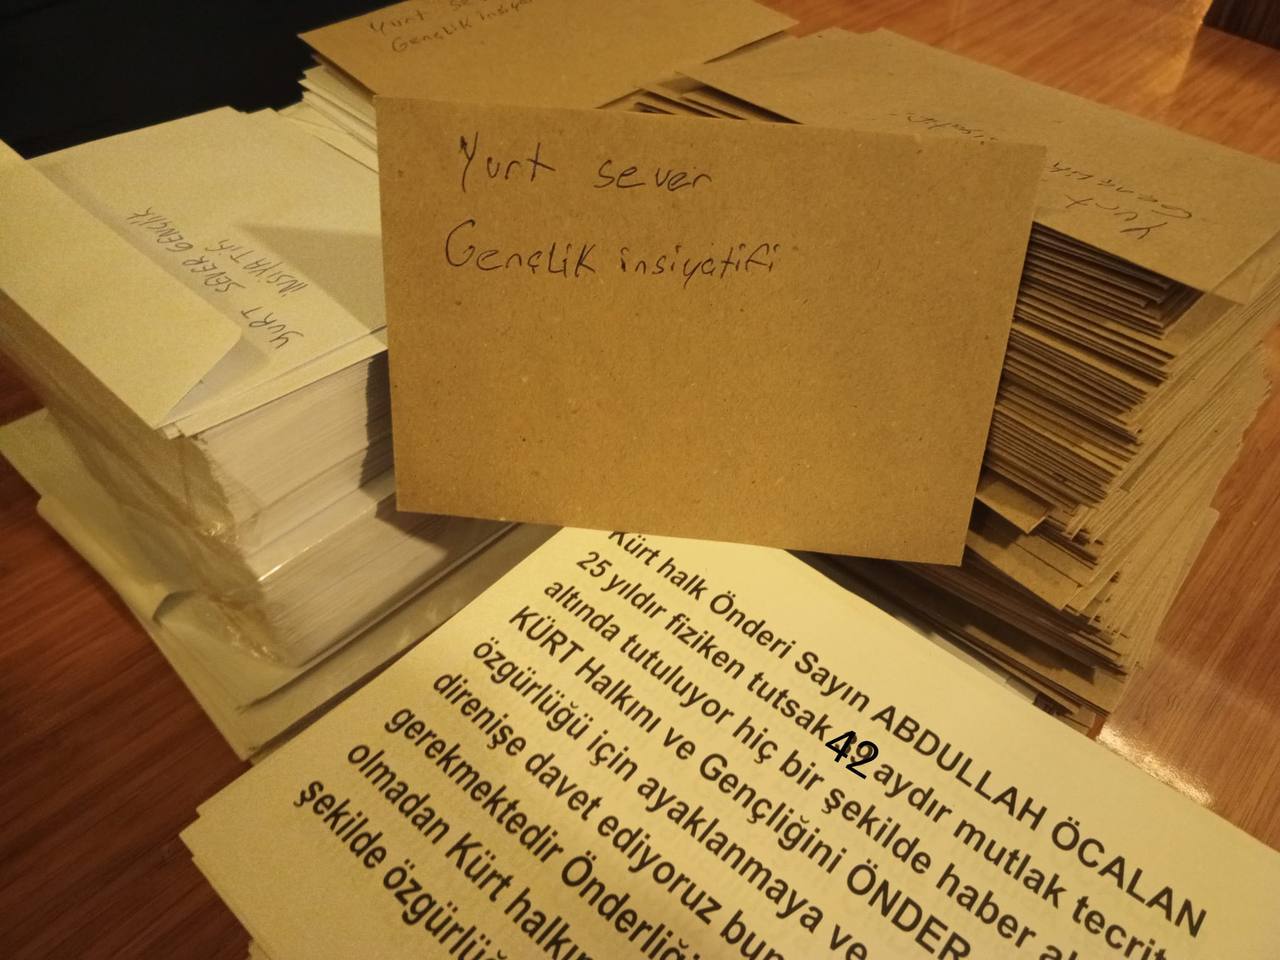 Yurt
Gençlik insiya
Yurt sever
Gençlik insiyatifi
YURT SEVER GENÇLİK
İNSİYATİFİ
Yurt
Kürt halk Önderi Sayın ABDULLAH ÖCALAN
25 yıldır fiziken tutsak 42 aydır mutlak tecrit
altında tutuluyor hiç bir şekilde haber
KÜRT Halkını ve Gençliğini ÖNDER
özgürlüğü için ayaklanmaya ve
direnişe davet ediyoruz bun
gerekmektedir Önderliği
olmadan Kürt halkın
şekilde özgürlü